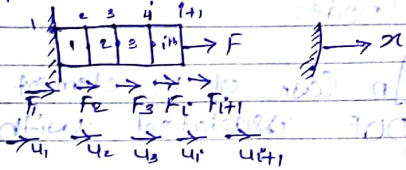 1 2 3 4 i+1
1 2 3 ith F x
F1 F2 F3 Fi Fi+1
u1 u2 u3 ui ui+1